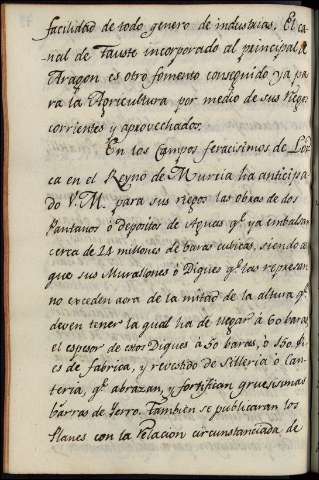 facilidad de todo genero de industrias. El ca-
nal de Tauste incorporado al principal de
Aragon es otro fomento conseguido ya pa
ra la Agricultura por medio de sus riegos
corrientes y aprovechados.
En los Campos feracisimos de Lor
ca en el Reyno de Murcia ha anticipa
do V. M. para sus riegos las obras de dos
Pantanos ò depositos de Aguas qe. ya embalsan
cerca de 24 millones de baras cubicas, siendo asi
que sus Murallones ò Diques qe. las represan
no exceden aora de la mitad de la altura qe.
deven tener la qual ha de llegar à 60 baras
el espesor de estos Diques à 50 baras, ò 150 pi
es de fabrica, y revestido de Silleria ò Can-
teria, qe. abrazan, y fortifican gruesisimas
barras de Yerro. Tambien se publicaran los
Planes con la relacion circunstanciada de